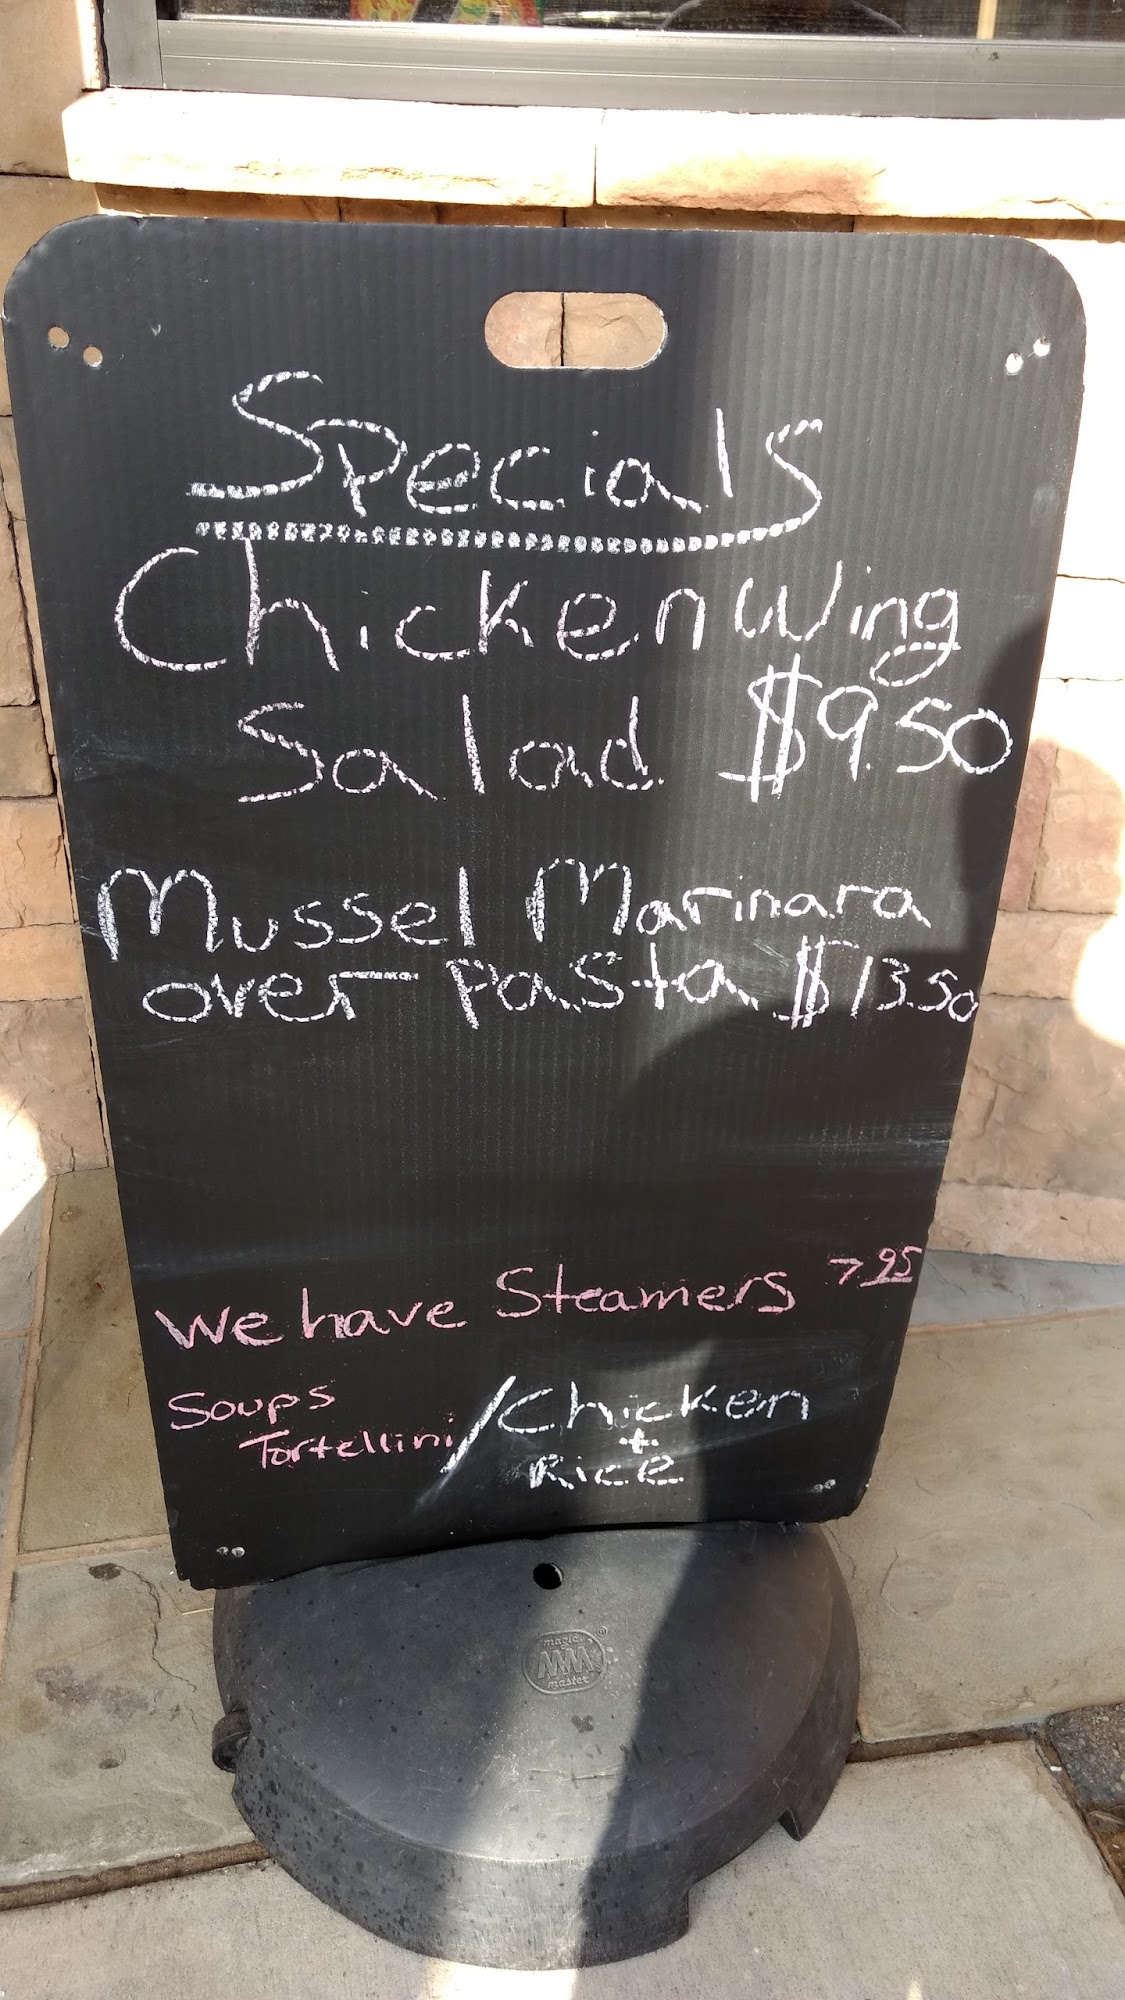 Specials
Chicken Wing
Salad $9.50
Mussel Marinara
over pasta $13.50
We have Steamers 7 95
Soups
Tortellini / Chicken
+
Rice
magic
MM
master